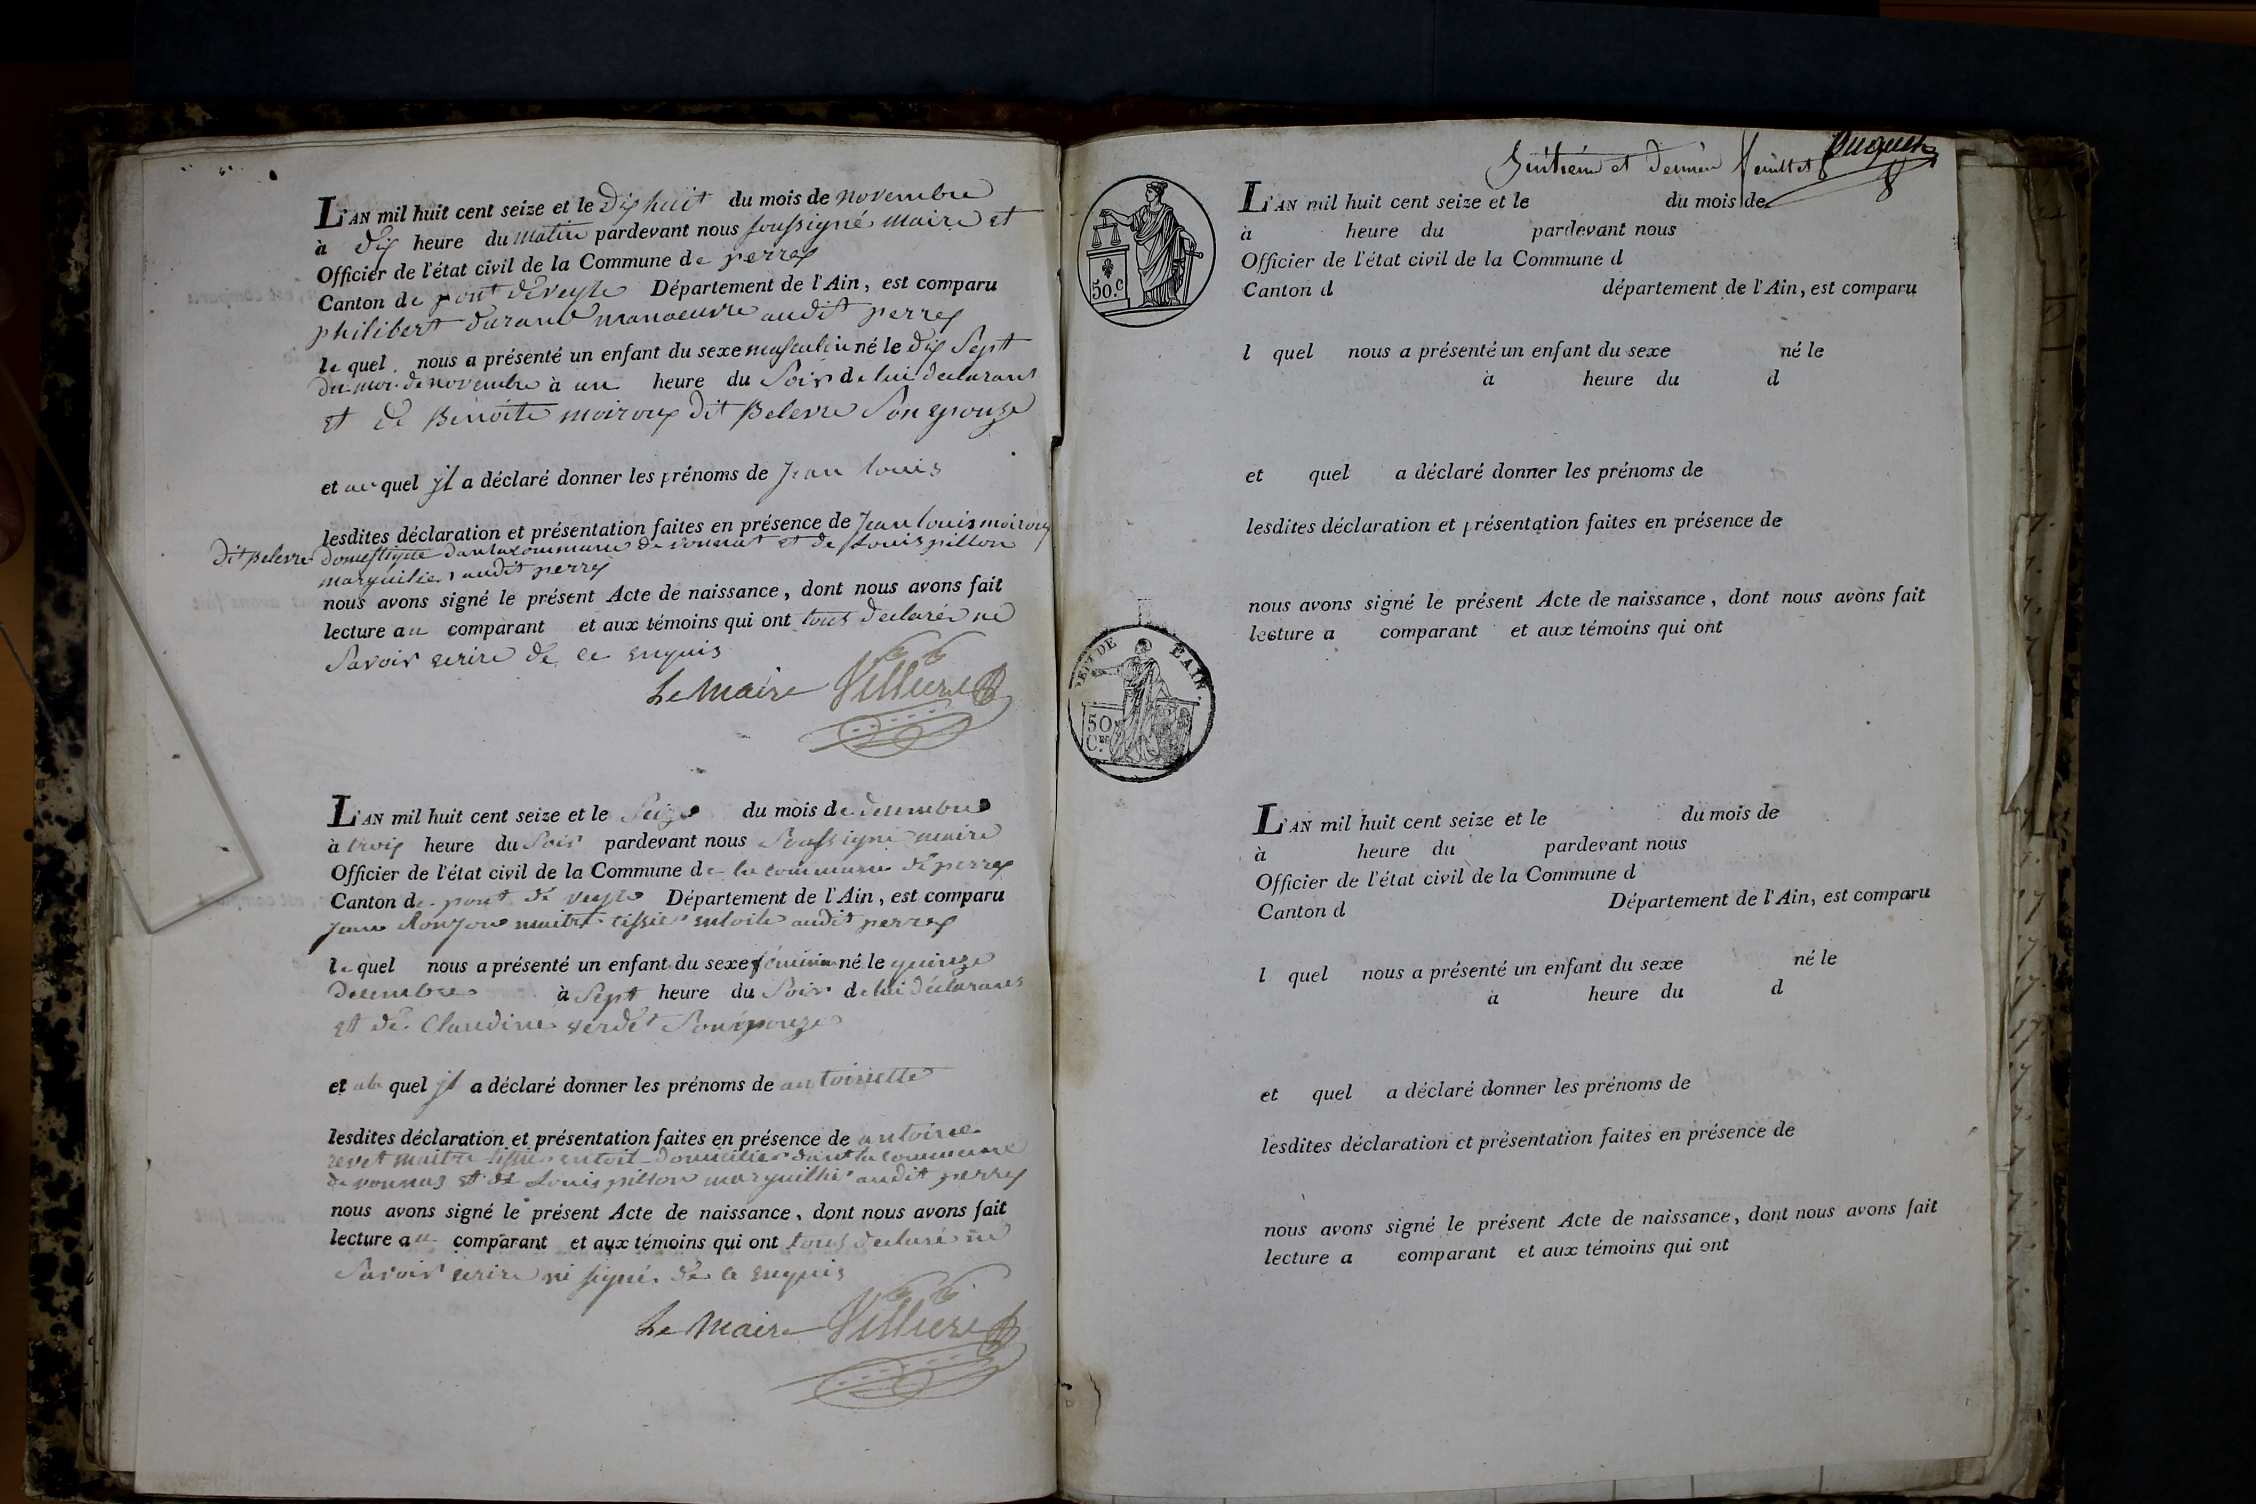 L'AN mil huit cent seize et le dix huit du mois de novembre
à dix heure du matin pardevant nous soussigné maire et
Officier de l'état civil de la Commune de perrex
Canton de pont de veyle Département de l'Ain, est comparu
philibert durand manoeuvre audit perrex
le quel nous a présenté un enfant du sexe masculin né le dix sept
du mois de novembre à un heure du soir de lui declarant
et de Benoite moiroux dit Belevre son epouze
et au quel jl a déclaré donner les prénoms de jean louis
lesdites déclaration et présentation faites en présence de jean louis moiroux
dit Belevre domestique dans la commune de vonnas et de Louis pillon
marguilier audit perrex
nous avons signé le présent Acte de naissance, dont nous avons fait
lecture au comparant et aux témoins qui ont tous declaré ne
savoir ecrire de ce enquis
Le Maire Villiere
L'AN mil huit cent seize et le seize du mois de decembre
à trois heure du soir pardevant nous soussigné maire
Officier de l'état civil de la Commune de la commune de perrex
Canton de pont de veyle Département de l'Ain, est comparu
maitre tissier entoile audit perrex
le quel nous a présenté un enfant du sexe féminin né le quinze
decembre à sept heure du soir de lui déclarant
et de Claudine verdet son épouze
et a la quel jl a déclaré donner les prénoms de antoinette
lesdites déclaration et présentation faites en présence de antoine
revet maitre tissier entoil domicilier dans la commune
de vonnas et de Louis pillon marguillier audit perrex
nous avons signé le présent Acte de naissance, dont nous avons fait
lecture au comparant et aux témoins qui ont tous declaré ne
savoir ecrire ni signé de ce enquis
Le Maire Villiere
huitieme et dernier feuillet
50.C
L'AN mil huit cent seize et le du mois de
à heure du pardevant nous
Officier de l'état civil de la Commune d
Canton d département de l'Ain, est comparu
l quel nous a présenté un enfant du sexe né le
à heure du d
et quel a déclaré donner les prénoms de
lesdites déclaration et présentation faites en présence de
nous avons signé le présent Acte de naissance, dont nous avons fait
lecture a comparant et aux témoins qui ont
DE L'AIN
50
L'AN mil huit cent seize et le du mois de
à heure du pardevant nous
Officier de l'état civil de la Commune d
Canton d Département de l'Ain, est comparu
l quel nous a présenté un enfant du sexe né le
à heure du d
et quel a déclaré donner les prénoms de
lesdites déclaration et présentation faites en présence de
nous avons signé le présent Acte de naissance, dont nous avons fait
lecture a comparant et aux témoins qui ont